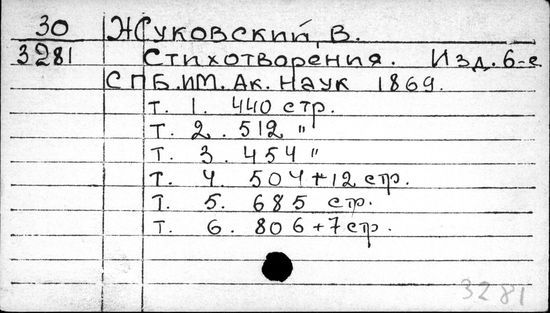 30 Жуковский, В.
3281 Стихотворения. Изд. 6-е
СПБ. ИМ. Ак. Наук 1869.
т. 1. 440 стр.
т. 2. 512 "
т. 3. 454 "
т. 4. 504+12 стр.
т. 5. 685 стр.
т. 6. 806+7 стр.
3281